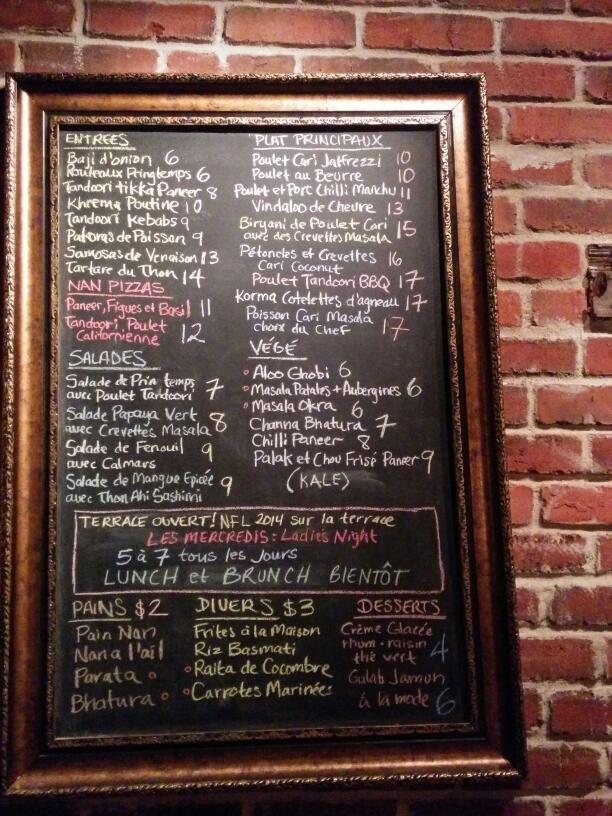 ENTREES
Baji d'onion 6
Rouleaux Printemps 6
Tandoori tikka Paneer 8
Kheema Poutine 10
Tandoori Kebabs 9
Pakoras de Poisson 9
Samosas de Venaison 13
Tartare du Thon 14
NAN PIZZAS
Paneer, Figues et Basil 11
Tandoori Poulet
Californienne 12
SALADES
Salade de Prin temps
avec Poulet Tandoori 7
Salade Papaya Vert
avec Crevettes Masala 8
Salade de Fenouil
avec Calmars 9
Salade de Mangue Epicée
avec Thon Ahi Sashimi 9
PLAT PRINCIPAUX
Poulet Cari Jalfrezzi 10
Poulet au Beurre 10
Poulet et Porc Chilli Manchu 11
Vindaloo de Chevre 13
Biryani de Poulet Cari
avec des Crevettes Masala 15
Pétoncles et Crevettes
Cari Coconut 16
Poulet Tandoori BBQ 17
Korma Cotelettes d'agneau 17
Poisson Cari Masala
choix du Chef 17
VÉGÉ
Aloo Ghobi 6
Masala Patates + Aubergines 6
Masala Okra 6
Channa Bhatura 7
Chilli Paneer 8
Palak et Chou Frisé Paneer 9
(KALE)
TERRACE OUVERT! NFL 2014 sur la terrace
LES MERCREDIS: Ladies Night
5 à 7 tous les Jours
LUNCH et BRUNCH BIENTÔT
PAINS $2
Pain Nan
Nan a l'ail
Parata
Bhatura
DIVERS $3
Frites à la Maison
Riz Basmati
Raita de Cocombre
Carrotes Marinées
DESSERTS
Crème Glacée
rhum-raisin
thè vert 4
Gulab Jamun
à la mode 6